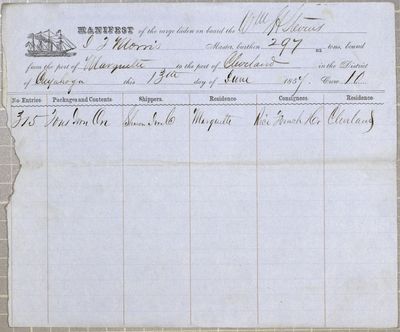 MANIFEST of the cargo laden on board the Wm H Stevens
Morris Master, burthen 297 tons, bound
from the port of Marquette to the port of Cleveland in the District
of Cuyahoga this 13th day of June 1857. Crew 10
No. Entries Packages and Contents. Shippers. Residence Consignees. Residence
315 Tons Iron Ore Iron Co Marquette Cleveland